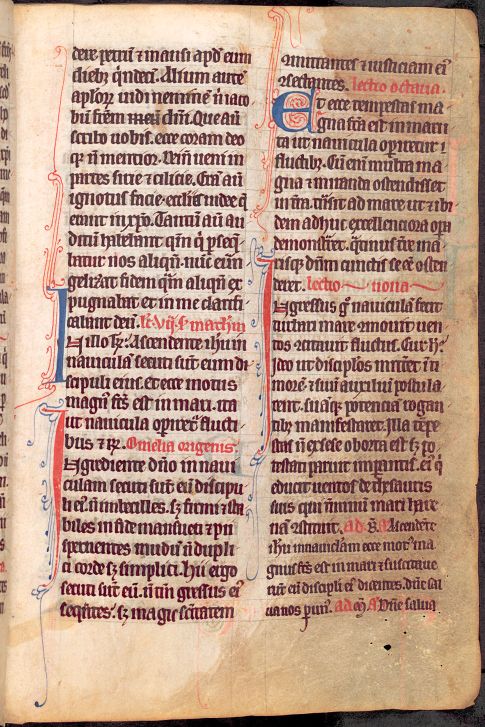 dere petrū ⁊ mansi apd̾ eum
diebꝫ q̅ndeci. Alium autē
aploꝝ uidi neminē n̄ iaco
bū frēm dn̄i. Que aū
scribo uobis. ecce coram deo
q̄ nō mentior. Dein̄ ueni in
partes sirie ⁊ cilicie. Erā aū
ignotus facie ecclīis iudee q̄
erant in xp̄o. Tantū aū au
ditū habebant qm̄ q̄ p̄seq̄
batur nos aliqn̄. nūc euā
gelizat fidem quā aliqn̄ ex
pugnabat et in me clarifi
cabant deū. lc̄. vij. s. mathm̄
In illo t̄r̄. Ascendente ihū in
nauiculā secuti sūt eum di
scipuli eius. Et ecce motus
magn̄ fc̄s est in mari. ita
ut nauicula opiret̄ flucti
bus ⁊ r̄. Omelia origenis.
Ingrediente dn̄o in naui
culam secuti sūt eū discipu
li eī. nō imbecilles. sꝫ firmi ⁊ sta
biles in fide mansueti ⁊ pii
spernentes mūdū nō dupli
ci corde sꝫ simplici. Hii ergo
secuti sūt eū. nō tm̄ gressus eī
seq̄ntes. sꝫ magis sc̄itatem
comitantes ⁊ iusticiam eī
sectantes. lectio octaua.
Et ecce tempestas ma
gna fc̄a est in mari
ita ut nauicula opiretur
fluctibꝫ. Cū enī multa ma
gna ⁊ miranda ostendisset
in t̄ra. t̄nsit ad mare ut ⁊ ibi
dem adhuc excellenciora opa
demonstret. q̄tinus t̄re ma
risqꝫ dn̄m cunctis se eē osten
deret. lectio nona
Ingressus g̊ nauiculā fecit
turbari mare ꝯmouit uen
tos ꝯcitauit fluctus. Cur h̊.
Ideo ut disciplos mitt̄et ī ti
morē ⁊ suū auxiliū postula
rent. suāqꝫ potenciā rogan
tibꝫ manifestaret. Illa tēpe
stas nō ex sese oborta est sꝫ po
testati paruit imperantis. eī q̄
educit uentos de thesauris
suis qui t̄minū mari ꝯstitu
ad B̄. Ascendente
ihū in nauiculam ecce mot̾ ma
gnus fc̄s est in mari ⁊ suscitaue
runt eū discipli eī dicentes. dn̄e sal
ua nos pim̾. ad m̄. Dn̄e salua